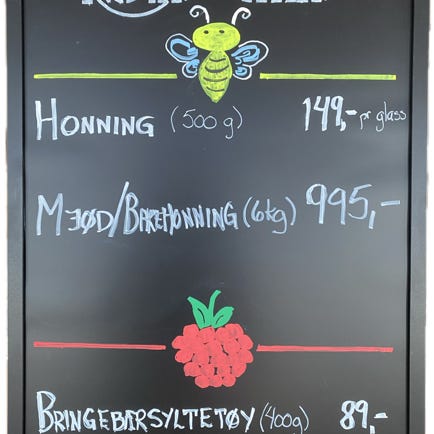 HONNING (500g) 149,- pr glass
MJØD/BAKEHONNING (6kg) 995,-
BRINGEBÆRSYLTETØY (400g) 89,-